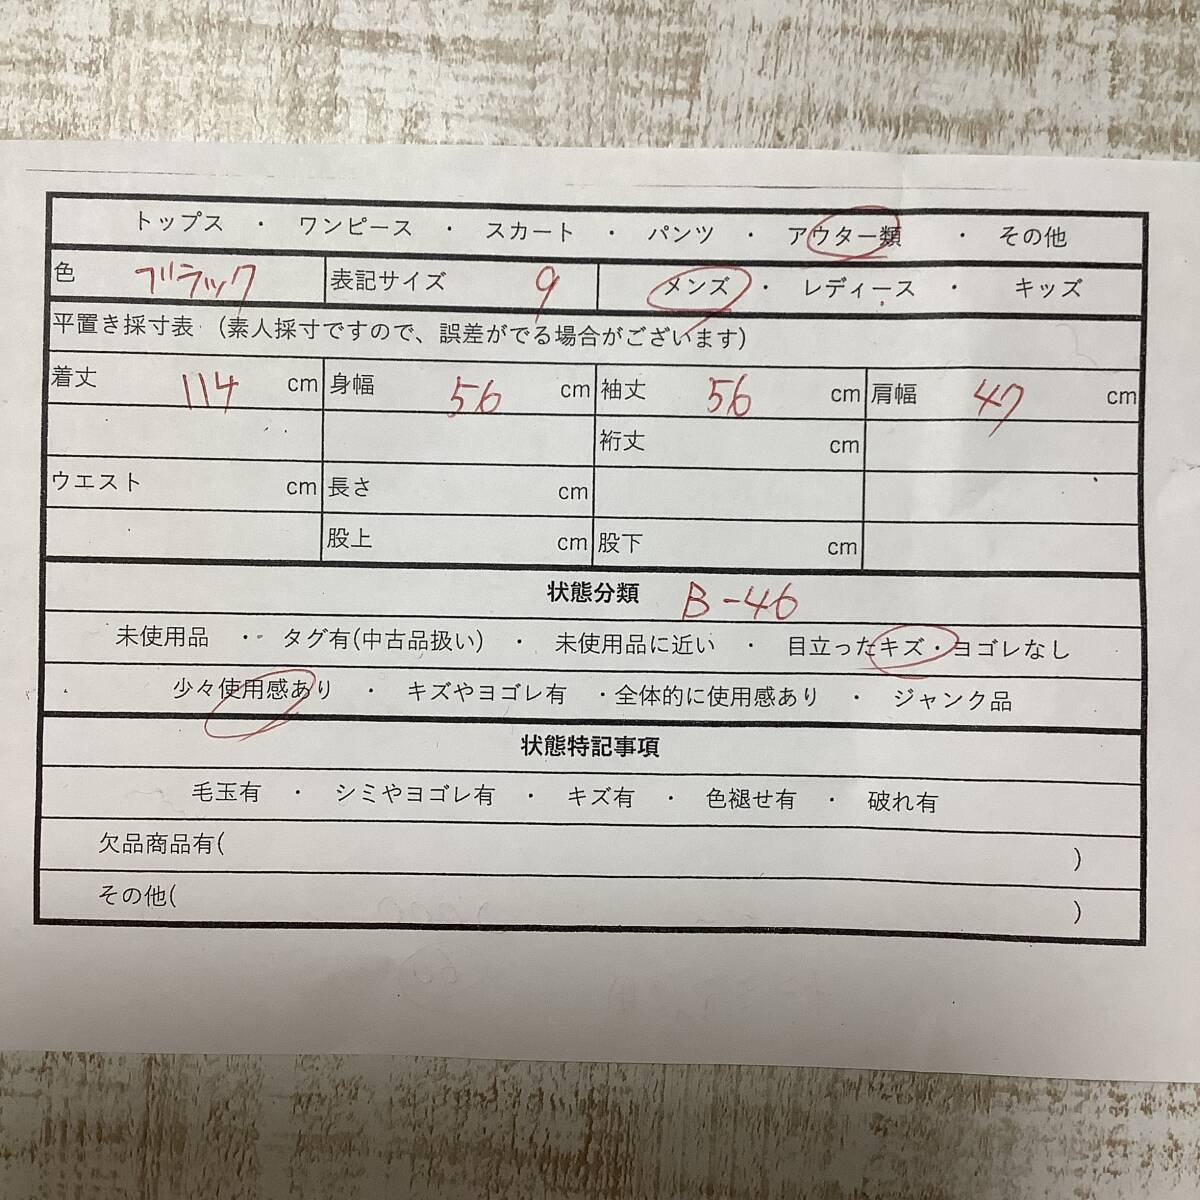 トップス ・ ワンピース ・ スカート ・ パンツ ・ アウター類 ・ その他
色 ブラック 表記サイズ 9 メンズ ・ レディース ・ キッズ
平置き採寸表 (素人採寸ですので、誤差がでる場合がございます)
着丈 114 cm 身幅 56 cm 袖丈 56 cm 肩幅 47 cm
裄丈 cm
ウエスト cm 長さ cm
股上 cm 股下 cm
状態分類 B-46
未使用品 ・ タグ有(中古品扱い) ・ 未使用品に近い ・ 目立ったキズ・ヨゴレなし
少々使用感あり ・ キズやヨゴレ有 ・全体的に使用感あり ・ ジャンク品
状態特記事項
毛玉有 ・ シミやヨゴレ有 ・ キズ有 ・ 色褪せ有 ・ 破れ有
欠品商品有( )
その他( )